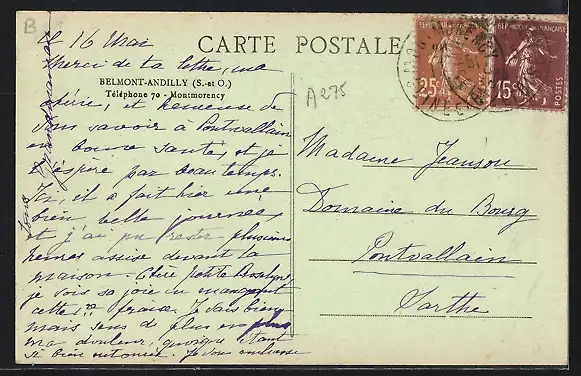 B
CARTE POSTALE
BELMONT-ANDILLY (S.-et O.)
Téléphone 70 - Montmorency
A275
REPUBLIQUE FRANÇAISE
25c
REPUBLIQUE FRANÇAISE
15c
POSTES
le 16 Mai
Merci de ta lettre, ma
chérie, et heureuse de
vous savoir à Pontvallain
en bonne santé, et je
espère par beau temps.
Ici, il a fait hier une
bien belle journée,
et j'ai pu rester plusieurs
heures assise devant la
maison. Chère petite
je vois sa joie en mangeant
cette fraise. Je vais bien
mais sens de plus en plus
ma douleur, quoique étant
si bien entourée. Je vous embrasse
tous
Grandmaman
Madame Jeanson
Domaine du Bourg
Pontvallain
Sarthe